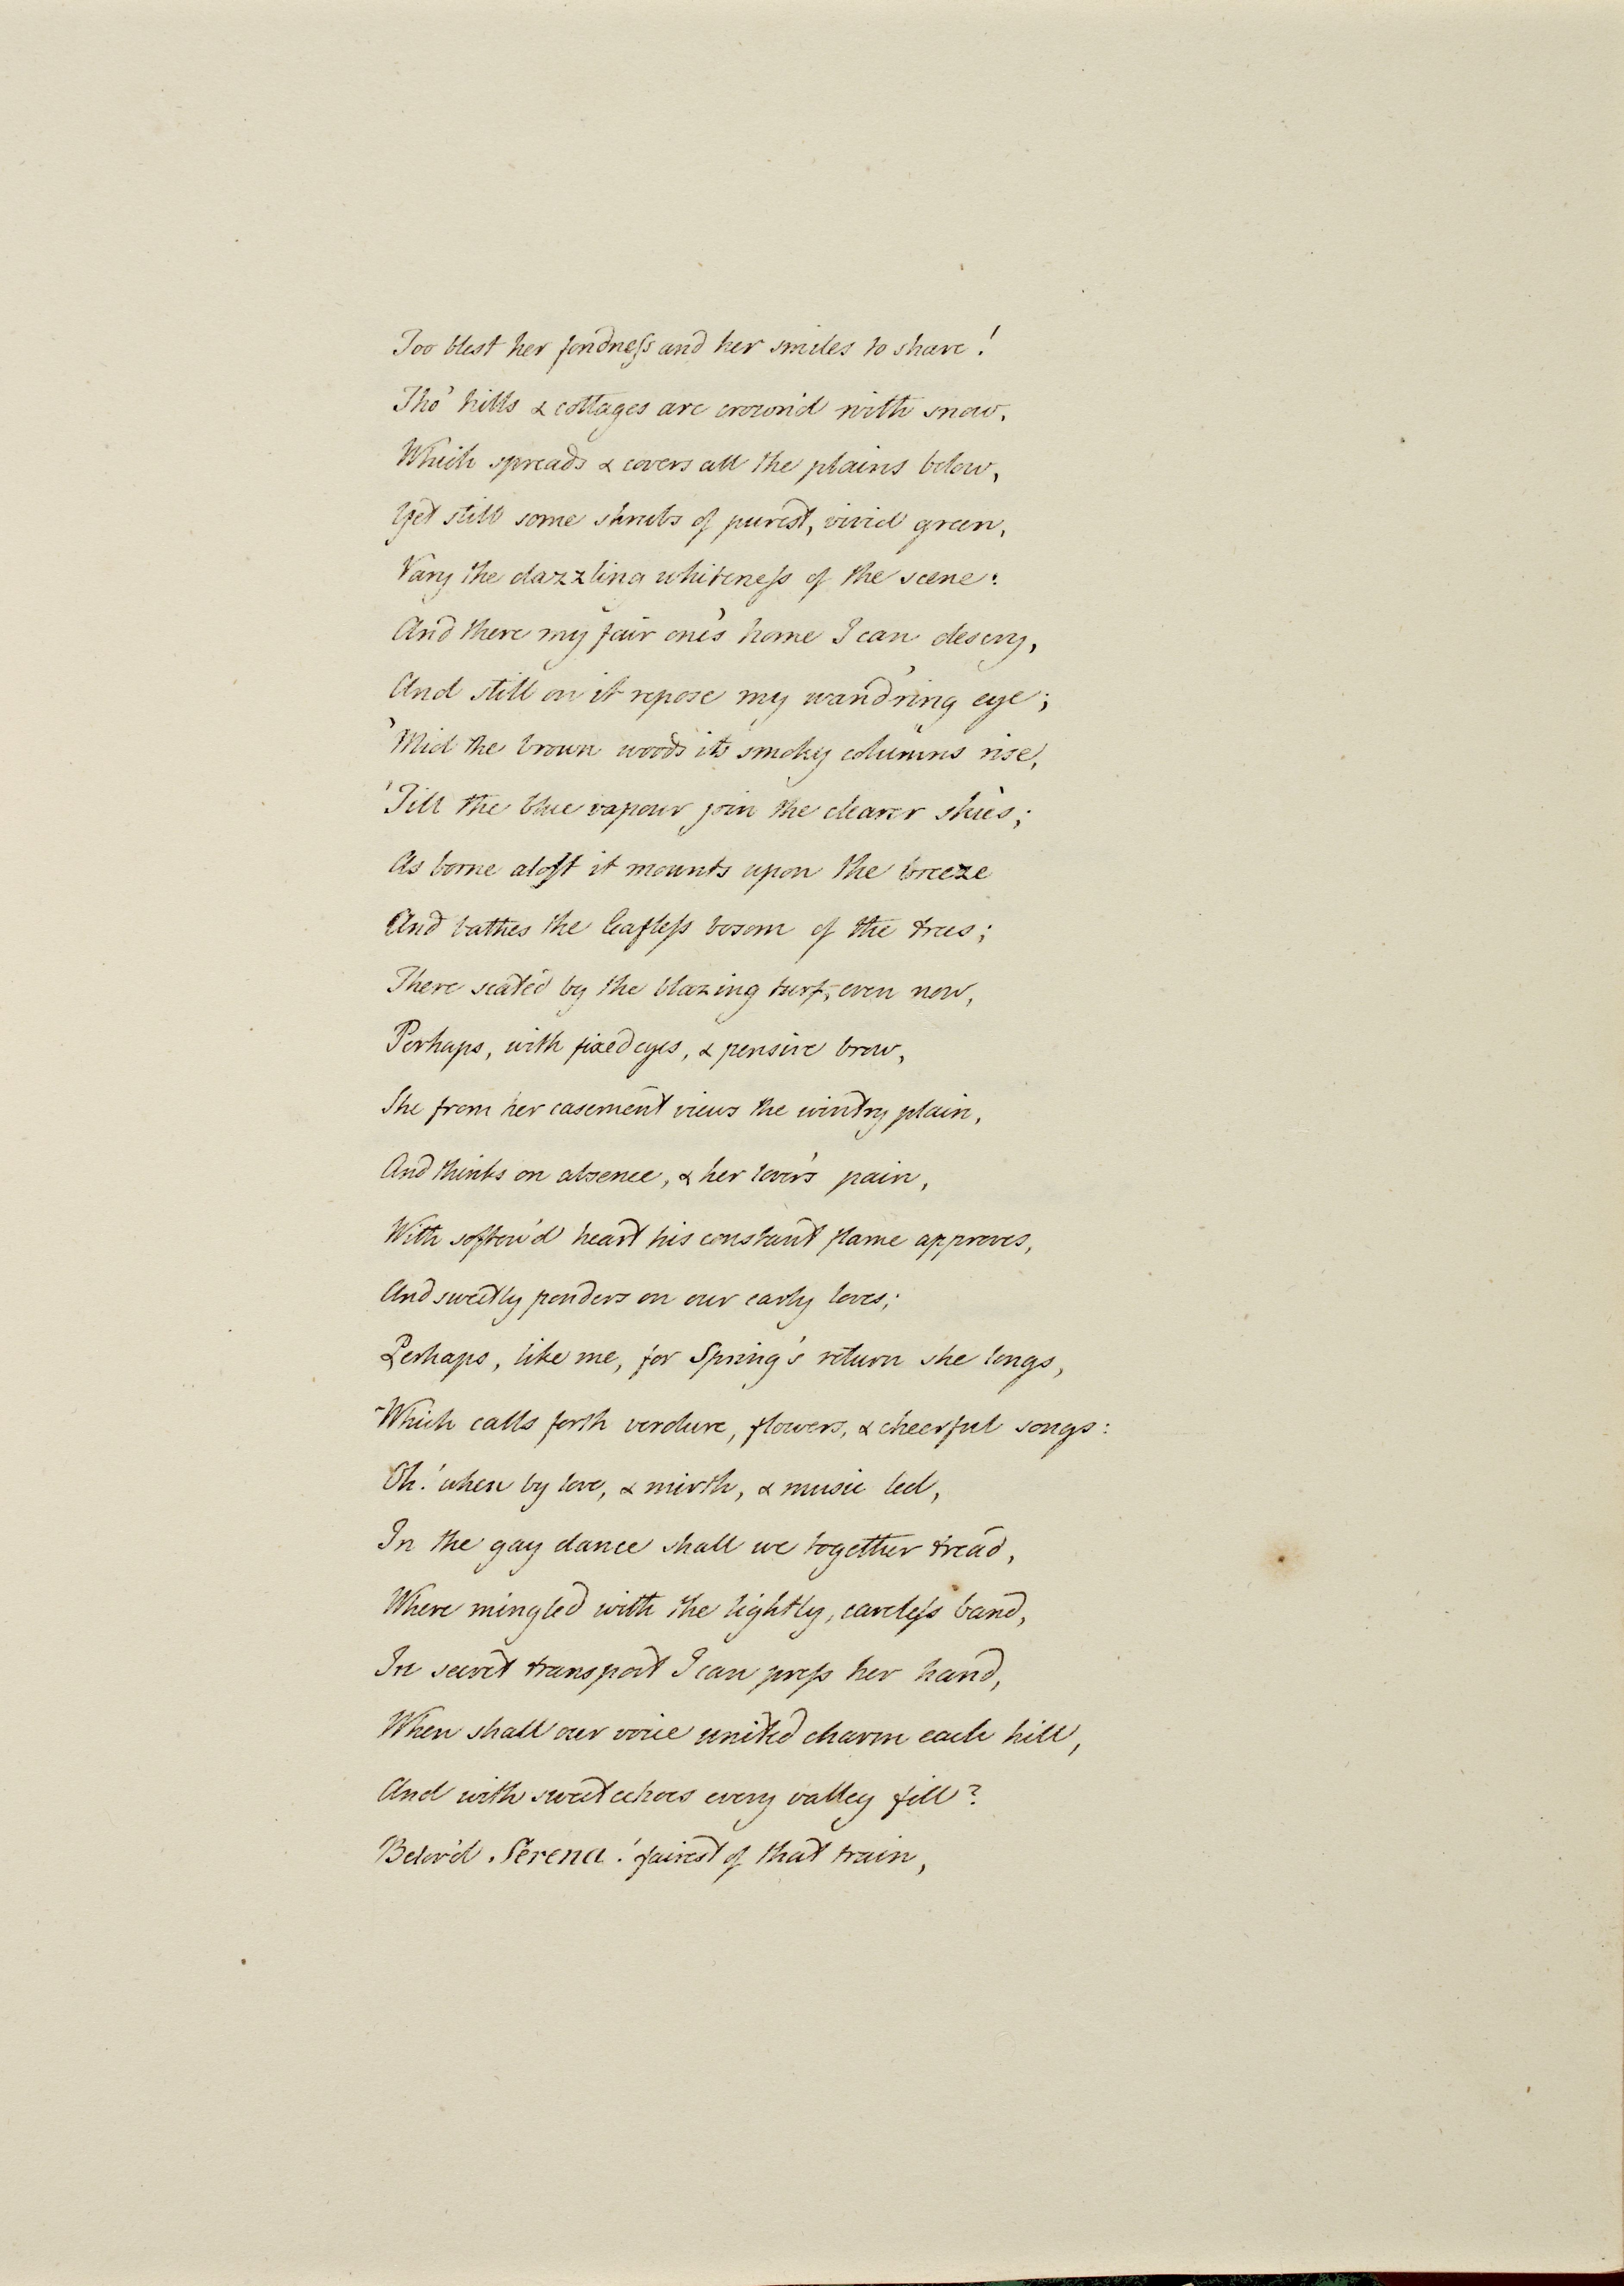 Too blest her fondneſs and her smiles to share!
Tho' hills & cottages are crown'd with snow,
Which spreads & covers all the plains below,
Yet still some shrubs of purest, vivid green,
Vary the dazzling whiteneſs of the scene:
And there my fair one's home I can descry,
And still on it repose my wand'ring eye;
'Mid the brown woods its smoky columns rise,
'Till the blue vapour join the clearer skies;
As borne aloft it mounts upon the breeze
And bathes the leafleſs bosom of the trees;
There seated by the blazing turf, even now,
Perhaps, with fixed eyes, & pensive brow,
She from her casement views the wintry plain,
And thinks on absence, & her lover's pain,
With soften'd heart his constant flame approves,
And sweetly ponders on our early loves;
Perhaps, like me, for Spring's return she longs,
Which calls forth verdure, flowers, & cheerful songs:
Oh! when by love, & mirth, & music led,
In the gay dance shall we together tread,
Where mingled with the lightly, careleſs band,
In secret transport I can preſs her hand,
When shall our voice united charm each hill,
And with sweet echoes every valley fill?
Belov'd Serena! fairest of that train,